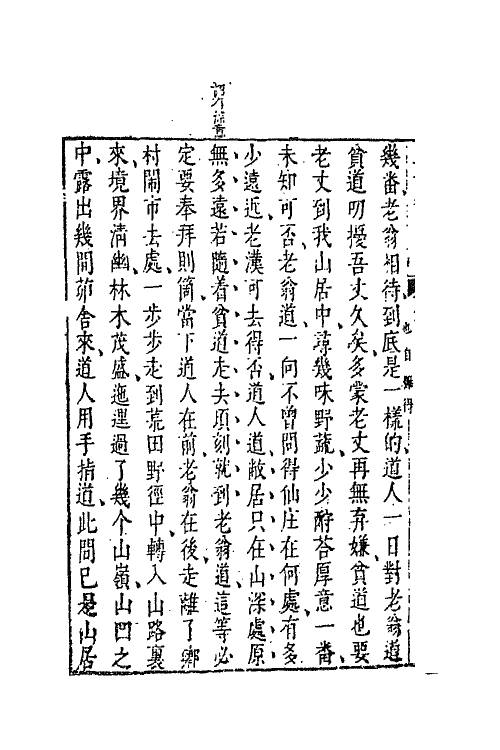 幾番老翁相待到底是一樣的道人一日對老翁道
貧道叨擾吾丈久矣多蒙老丈再無弃嫌貧道也要
老丈到我山居中尋幾味野蔬少少酧荅厚意一番
未知可否老翁道一向不曾問得仙庄在何處有多
少遠近老漢可去得否道人道敝居只在山深處原
無多遠若隨着貧道走去頃刻就到老翁道這等必
定要奉拜則箇當下道人在前老翁在後走離了鄉
村鬧市去處一步步走到荒田野徑中轉入山路裏
來境界清幽林木茂盛迤逦過了幾个山嶺山凹之
中露出幾間茆舍來道人用手指道此間已是山居